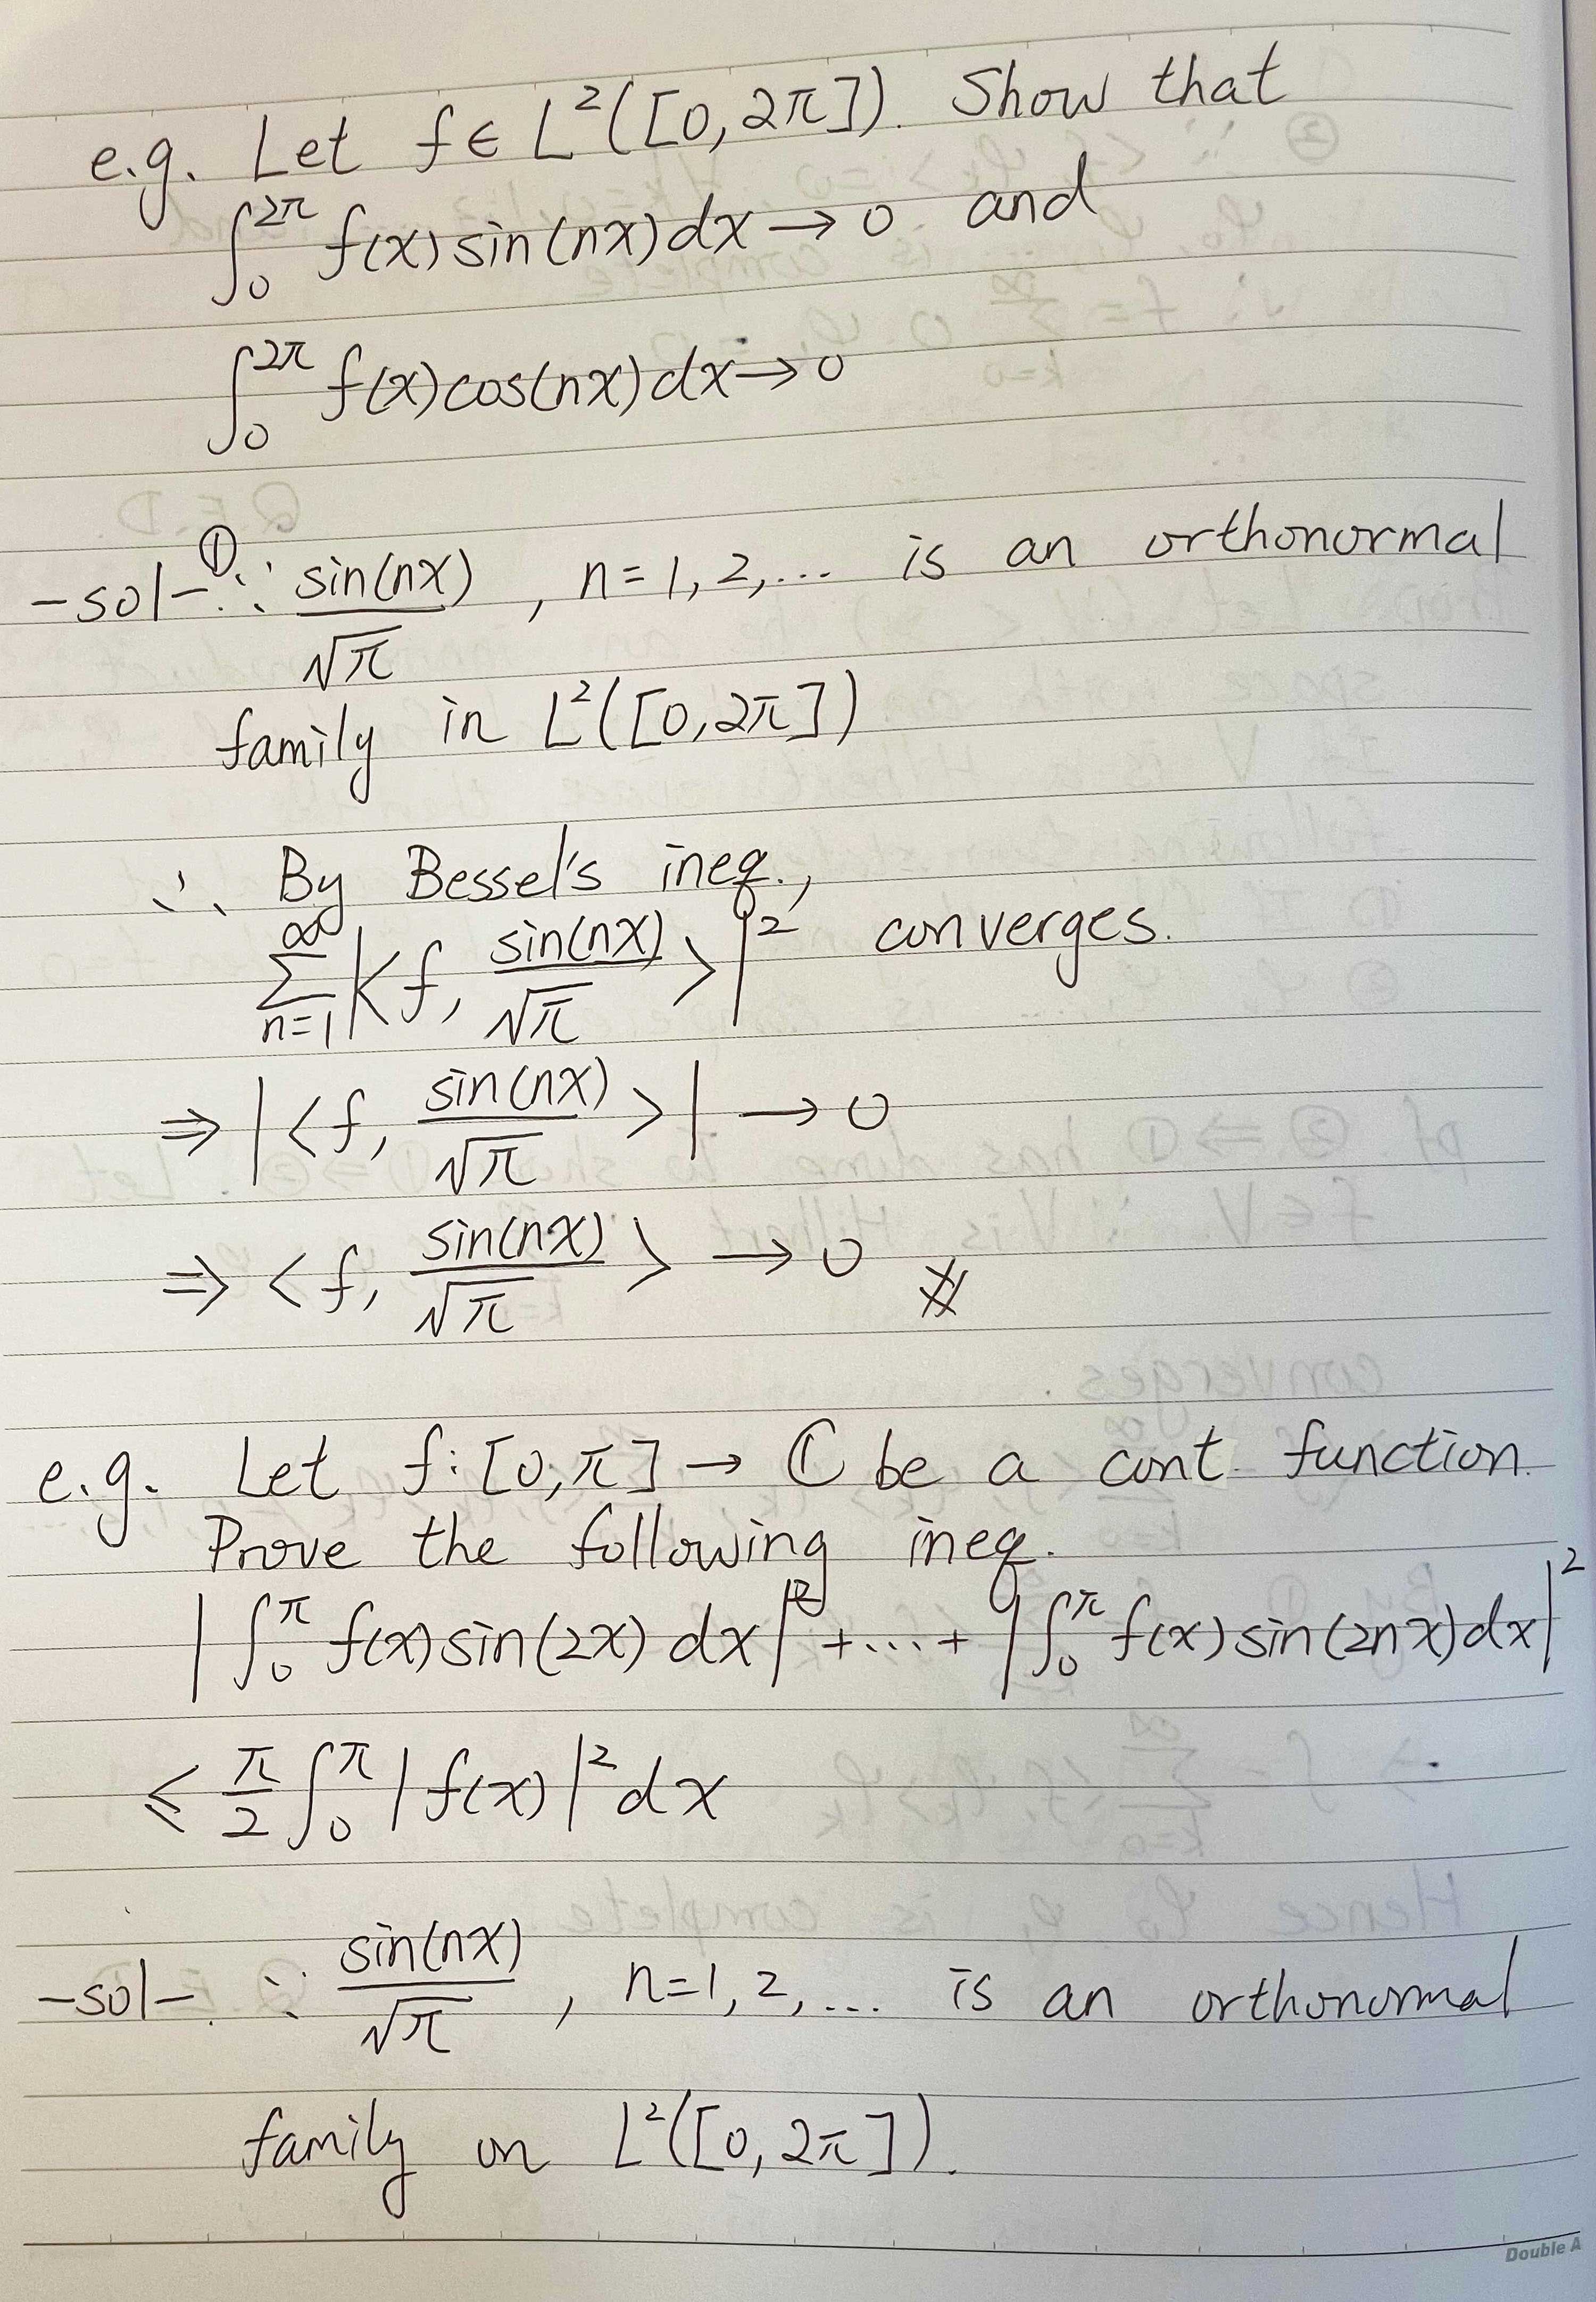 e.g. Let f ∈ L²([0, 2π]). Show that
∫₀^{2π} f(x) sin(nx) dx → 0 and
∫₀^{2π} f(x) cos(nx) dx → 0
-sol- ① ∵ sin(nx)/√π , n = 1, 2, ... is an orthonormal
family in L²([0, 2π])
∴ By Bessel's ineq.,
∑_{n=1}^{∞} |<f, sin(nx)/√π>|² converges.
⇒ |<f, sin(nx)/√π>| → 0
⇒ <f, sin(nx)/√π> → 0 ※
e.g. Let f: [0, π] → ℂ be a cont. function.
Prove the following ineq.
|∫₀^π f(x) sin(2x) dx|² + ... + |∫₀^π f(x) sin(2nx) dx|²
≤ π/2 ∫₀^π |f(x)|² dx
-sol- ∵ sin(nx)/√π , n = 1, 2, ... is an orthonormal
family on L²([0, 2π]).
Double A